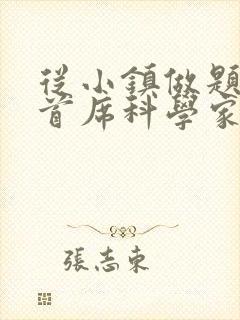 從小鎮做題
首席科學家
張志東